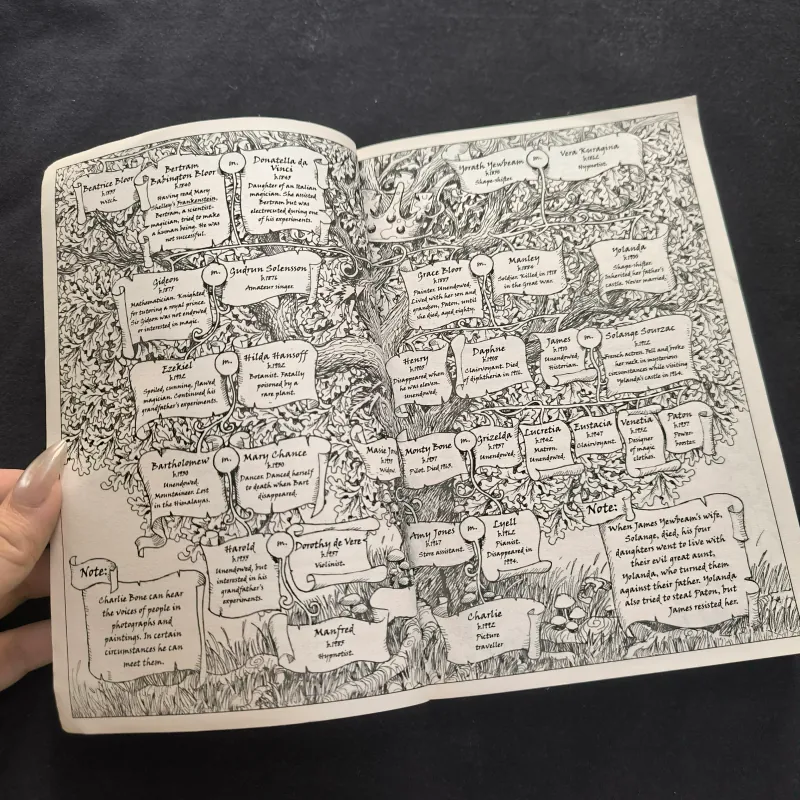 Beatrice Bloor
Witch
Bertram
Babington Bloor
Having read Mary
Shelley's Frankenstein,
Bertram, a scientist-
magician, tried to make
a human being. He was
not successful.
m.
Donatella da
Vinci
Daughter of an Italian
magician. She assisted
Bertram but was
electrocuted during one
of his experiments.
Gideon
Mathematician. Knighted
for tutoring a royal prince.
Sir Gideon was not endowed
or interested in magic.
m.
Gudrun Solensson
Amateur singer.
Ezekiel
Spoiled, cunning, flawed
magician. Continued his
grandfather's experiments.
m.
Hilda Hansoff
Botanist. Fatally
poisoned by a
rare plant.
Bartholomew
Unendowed.
Mountaineer. Lost
in the Himalayas.
m.
Mary Chance
Dancer. Danced herself
to death when Bart
disappeared.
Harold
Unendowed, but
interested in his
grandfather's
experiments.
m.
Dorothy de Vere
Violinist.
Manfred
Hypnotist.
Note:
Charlie Bone can hear
the voices of people in
photographs and
paintings. In certain
circumstances he can
meet them.
Yorath Yewbeam
Shape-shifter
m.
Vera Kuragina
Hypnotist.
Grace Bloor
Painter. Unendowed.
Lived with her son and
grandson, Paton, until
she died, aged eighty.
m.
Manley
Soldier. Killed in 1918
in the Great War.
Yolanda
Shape-shifter.
Inherited her father's
castle. Never married.
Henry
Disappeared when
he was eleven.
Unendowed.
Daphne
Clairvoyant. Died
of diphtheria in 1916.
James
Unendowed.
Historian.
m.
Solange Sourzac
French actress. Fell and broke
her neck in mysterious
circumstances while visiting
Yolanda's castle in 1964.
Monty Bone
Pilot. Died 1963.
m.
Grizelda
Unendowed.
Lucretia
Matron.
Unendowed.
Eustacia
Clairvoyant.
Venetia
Designer
of magic
clothes.
Paton
Power-
booster.
Amy Jones
Store assistant.
m.
Lyell
Pianist.
Disappeared in
1994.
Charlie
b.1992
Picture
traveller
Note:
When James Yewbeam's wife,
Solange, died, his four
daughters went to live with
their evil great aunt,
Yolanda, who turned them
against their father. Yolanda
also tried to steal Paton, but
James resisted her.